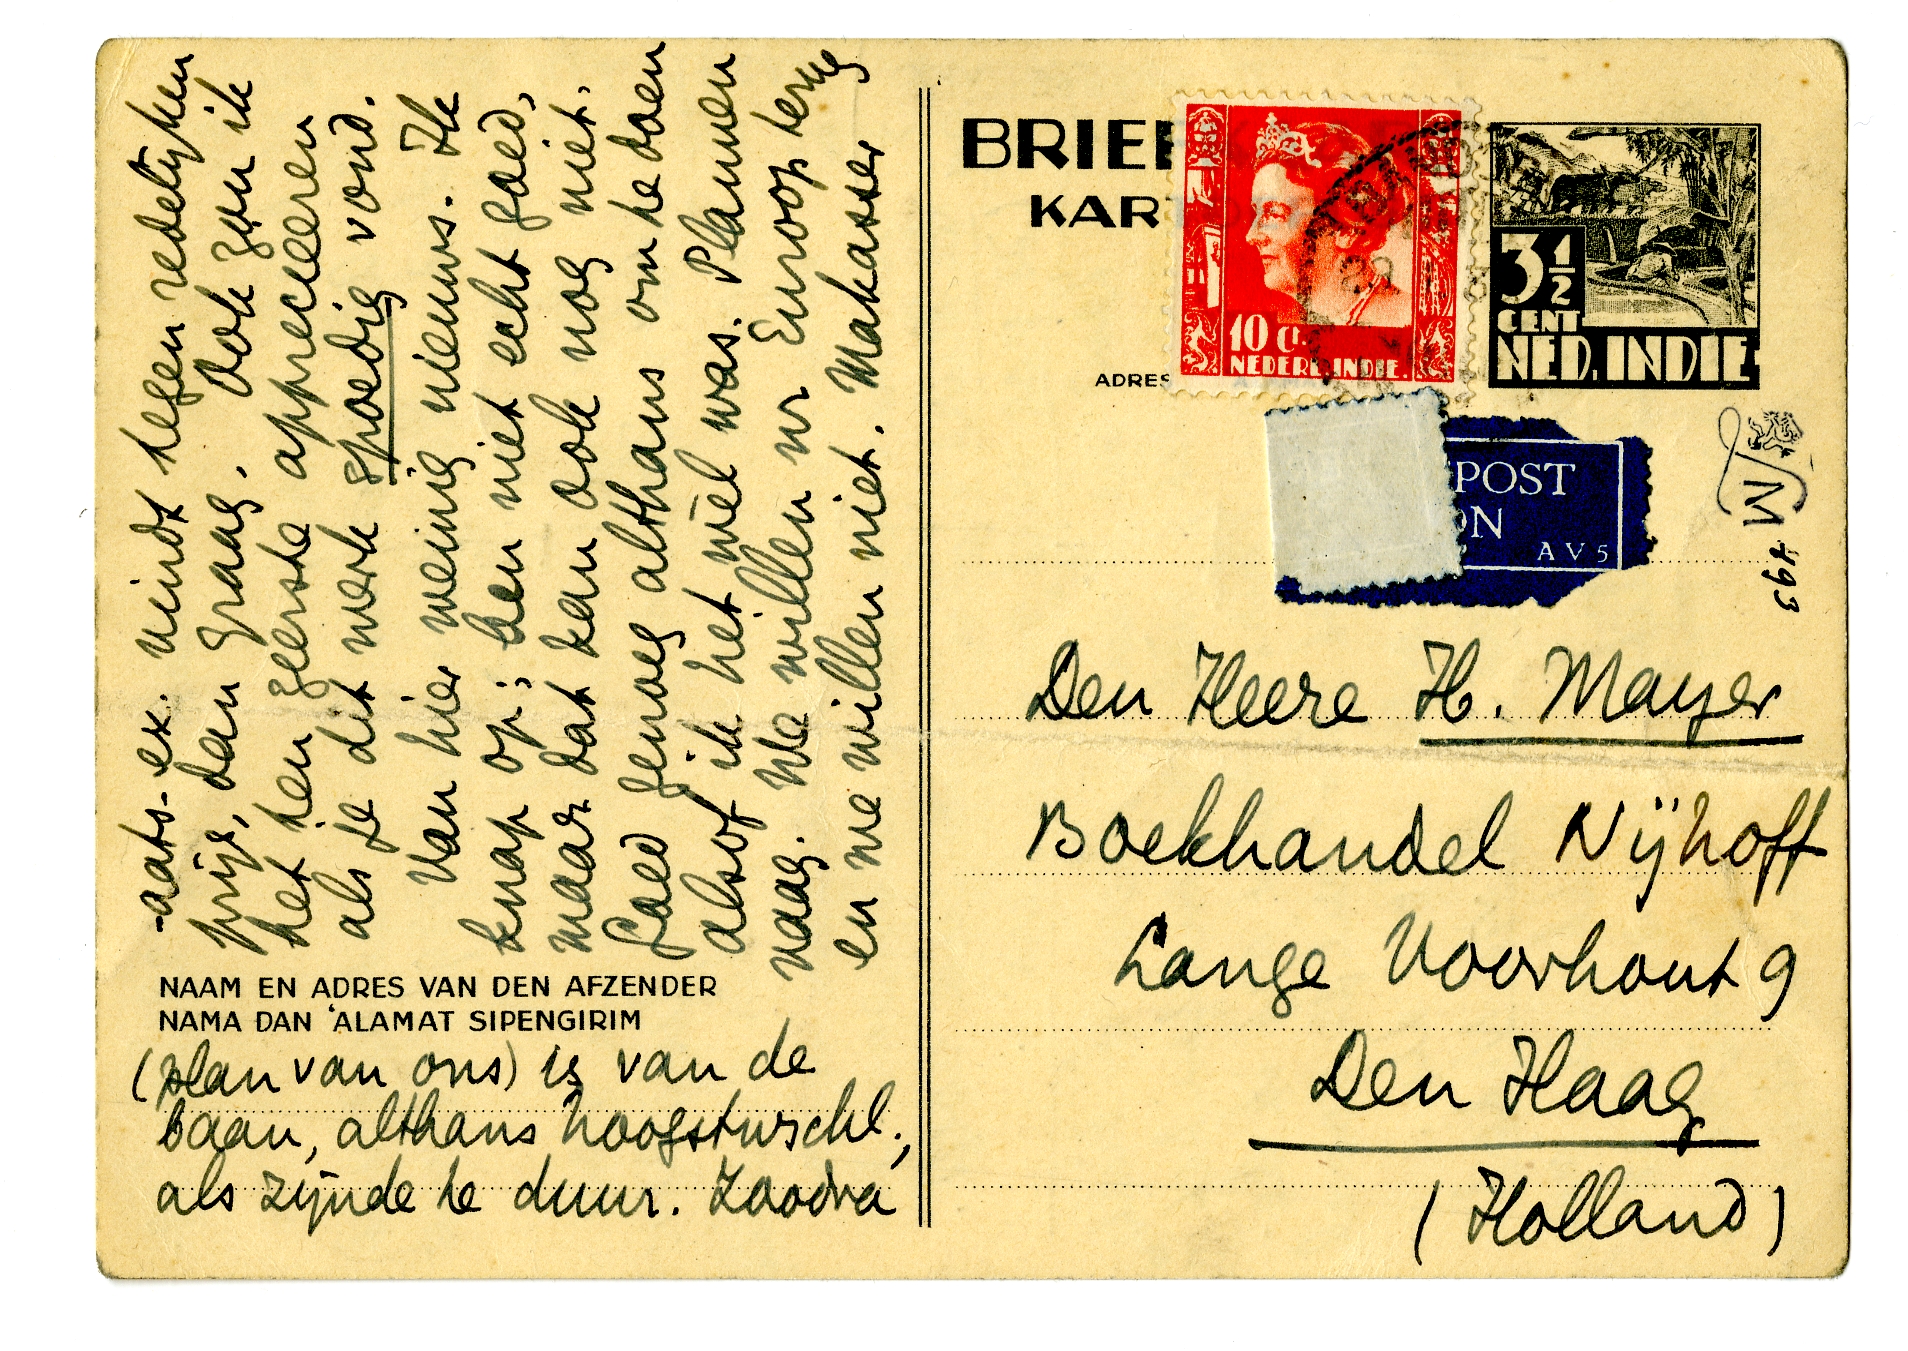 -aats-ex. vindt tegen redelijken
prijs, dan graag. Ook zou ik
het ten zeerste apprecieeren
als je dit werk spoedig vond.
Van hier weinig nieuws. Ik
knap op; ben niet echt goed,
maar dat kan ook nog niet.
Goed genoeg althans om te doen
alsof ik het wèl was. Plannen
vaag. We willen nr Europ terug
en we willen niet. Makasser
NAAM EN ADRES VAN DEN AFZENDER
NAMA DAN 'ALAMAT SIPENGIRIM
(plan van ons) is van de
baan, althans hoogstwschl.,
als zijnde te duur. Zoodra
BRIEF
KAR
ADRES
10 Ct.
NEDERL. INDIE.
3 1/2
CENT
NED. INDIE
POST
ON
AV5
M 493
Den Heere H. Mayer
Boekhandel Nijhoff
Lange Voorhout 9
Den Haag
(Holland)